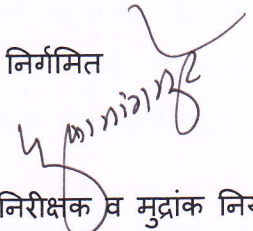 निर्गमित
निरीक्षक व मुद्रांक